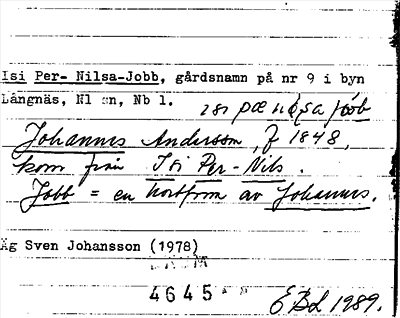 Isi Per- Nilsa-Jobb, gårdsnamn på nr 9 i byn
Långnäs, Nl :n, Nb l.
isi pæ nilsa jobb
Johannes Andersson, f 1848,
kom från Isi Per-Nils.
Jobb = en kortform av Johannes.
Äg Sven Johansson (1978)
4645
EBL 1989.